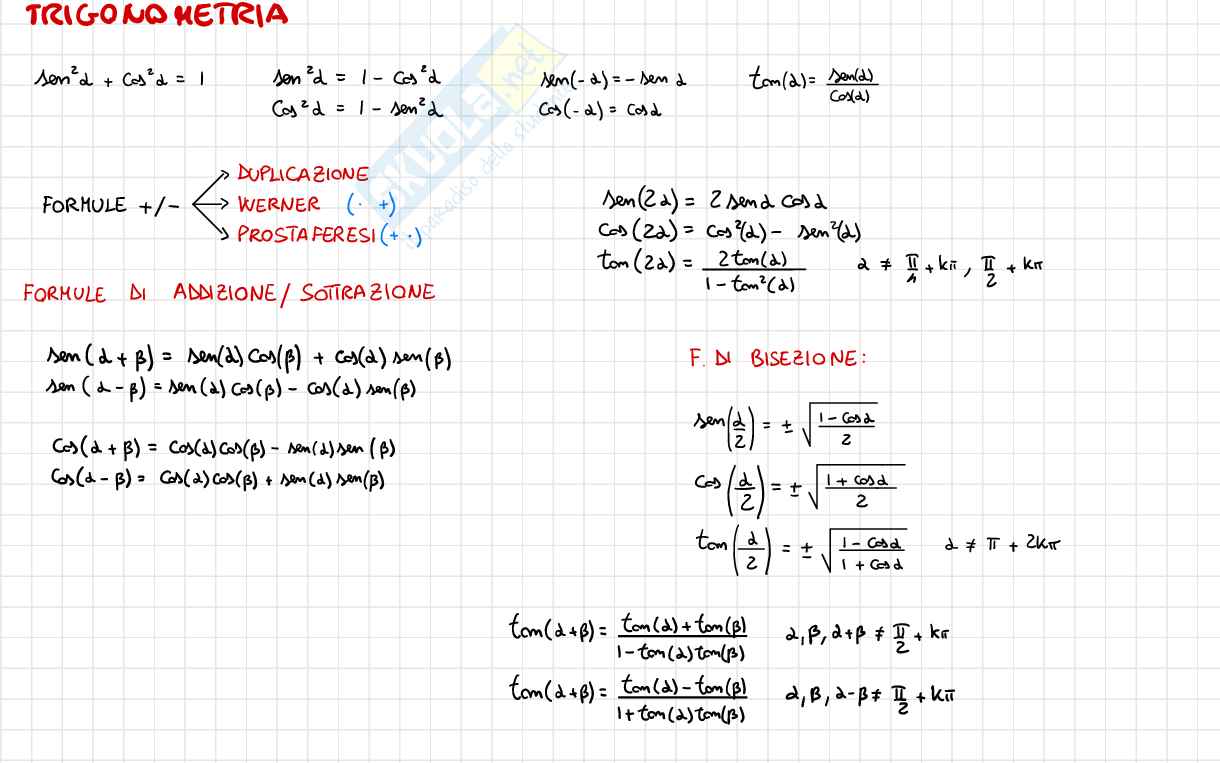 TRIGONOMETRIA
sen²α + cos²α = 1
sen²α = 1 - cos²α
cos²α = 1 - sen²α
sen(-α) = - sen α
cos(-α) = cos α
tan(α) = sen(α)/cos(α)
FORMULE +/-
DUPLICAZIONE
WERNER (· +)
PROSTAFERESI (+ ·)
sen(2α) = 2 sen α cos α
cos(2α) = cos²(α) - sen²(α)
tan(2α) = 2tan(α)/(1 - tan²(α)) α ≠ π/4 + kπ, π/2 + kπ
FORMULE DI ADDIZIONE/SOTTRAZIONE
sen(α + β) = sen(α) cos(β) + cos(α) sen(β)
sen(α - β) = sen(α) cos(β) - cos(α) sen(β)
cos(α + β) = cos(α) cos(β) - sen(α) sen(β)
cos(α - β) = cos(α) cos(β) + sen(α) sen(β)
F. DI BISEZIONE:
sen(α/2) = ± √((1 - cos α)/2)
cos(α/2) = ± √((1 + cos α)/2)
tan(α/2) = ± √((1 - cos α)/(1 + cos α)) α ≠ π + 2kπ
tan(α+β) = (tan(α) + tan(β))/(1 - tan(α) tan(β)) α, β, α+β ≠ π/2 + kπ
tan(α+β) = (tan(α) - tan(β))/(1 + tan(α) tan(β)) α, β, α-β ≠ π/2 + kπ
SKUOLA.net